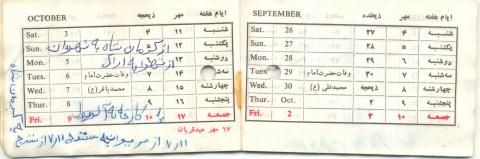 SEPTEMBER ذیقعده مهر ایام هفته
Sat. 26 ۲۷ ۴ شنبه
Sun. 27 ۲۸ ۵ یکشنبه
Mon. 28 ۲۹ ۶ دوشنبه
Tues. 29 وفات حضرت امام ۳۰ ۷ سه‌شنبه
Wed. 30 محمدتقی (ع) ۱ ۸ چهارشنبه
Thur. Oct. ۲ ۹ پنجشنبه
Fri. 2 ۳ ۱۰ جمعه
OCTOBER ذیحجه مهر ایام هفته
Sat. 3 ۴ ۱۱ شنبه
Sun. 4 ۵ ۱۲ یکشنبه
Mon. 5 ۶ ۱۳ دوشنبه
Tues. 6 وفات حضرت امام ۷ ۱۴ سه‌شنبه
Wed. 7 محمدباقر (ع) ۸ ۱۵ چهارشنبه
Thur. 8 ۹ ۱۶ پنجشنبه
Fri. 9 ۱۰ ۱۷ جمعه
۱۷ مهر عیدقربان
از کرمان شاه به تهران
از تهران به اراک
به کارخانه
۱۱ر۷ از مریوان به سنندج ۱۱ر۷ از سنندج
به کرمان شاه